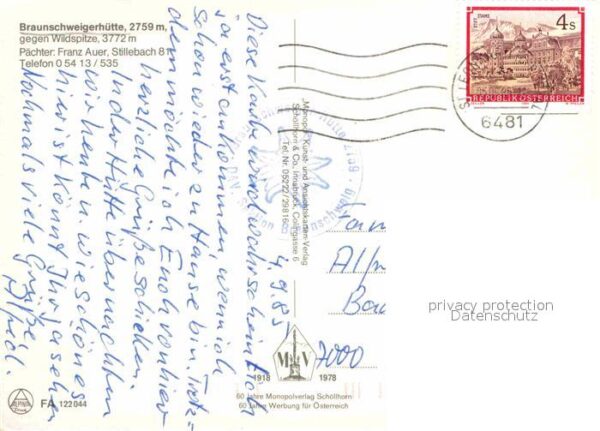 Braunschweigerhütte, 2759 m,
gegen Wildspitze, 3772 m
Pächter: Franz Auer, Stillebach 81
Telefon 0 54 13 / 535
4.9.85
Diese Karte wird wahrscheinlich
ja erst ankommen, wenn ich
schon wieder zu Hause bin. Trotz=
dem möchte ich Euch von hier
herzliche Grüße schicken.
In der Hütte übernachten
wir heute u. wie schön es
hier ist könnt Ihr ja sehen
Nochmals viele Grüße,
Alfred.
STIFT STAMS
4 S
REPUBLIK ÖSTERREICH
6481
Monopol Kunst- und Ansichtskarten-Verlag
Schöllhorn & Co., Innsbruck, Collingasse 6
Tel. Nr. 05222/29816
Fam
Alfr
Bau
7000
privacy protection
Datenschutz
M V
1918 1978
60 Jahre Monopolverlag Schöllhorn
60 Jahre Werbung für Österreich
ALPINA
FA 122044